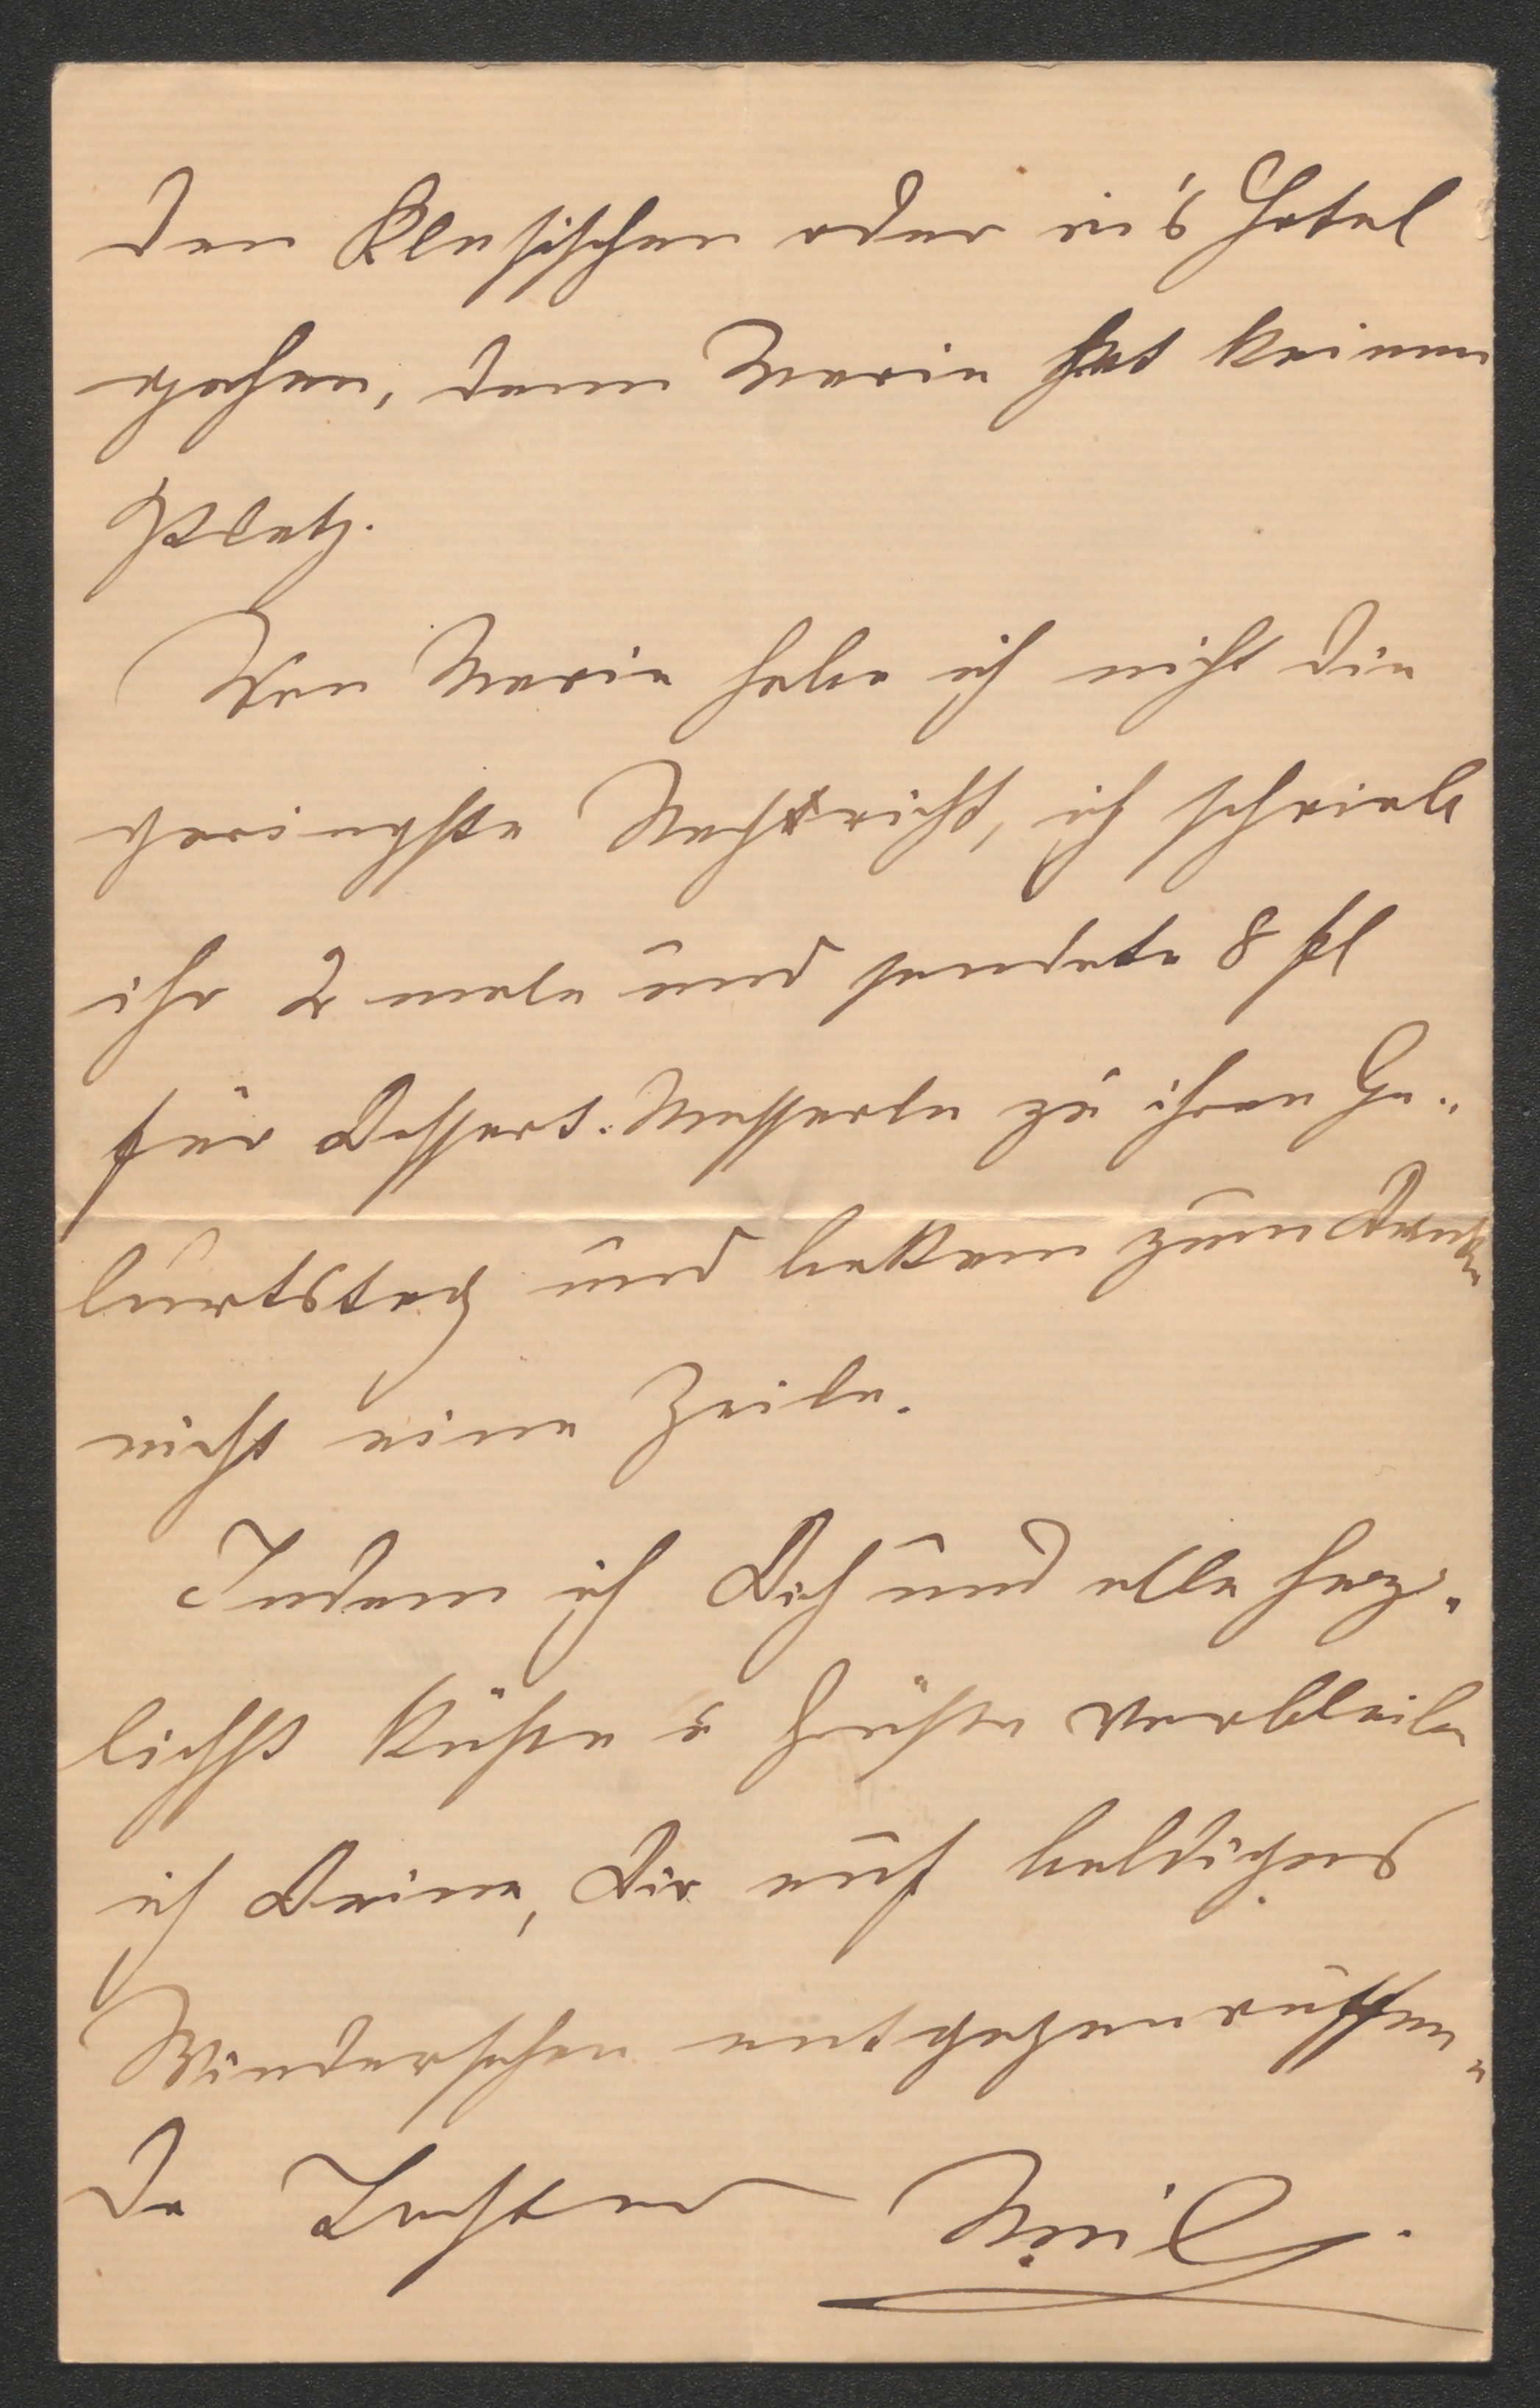 den Klusischen oder in's Hotel
gehen, denn Marie hat keinen
Platz.
Von Marie habe ich nicht die
geringste Nachricht, ich schrieb
ihr 2 male und sendete 8 fl
für Dessert-Messerln zu ihren Ge-
burtstag und bekam zum Dank
nicht eine Zeile.
Indem ich Dich und alle herz-
lichst küße u grüße verbleibe
ich Deine, Dir auf baldigens
Wiedersehen entgegenruffen-
de Tochter